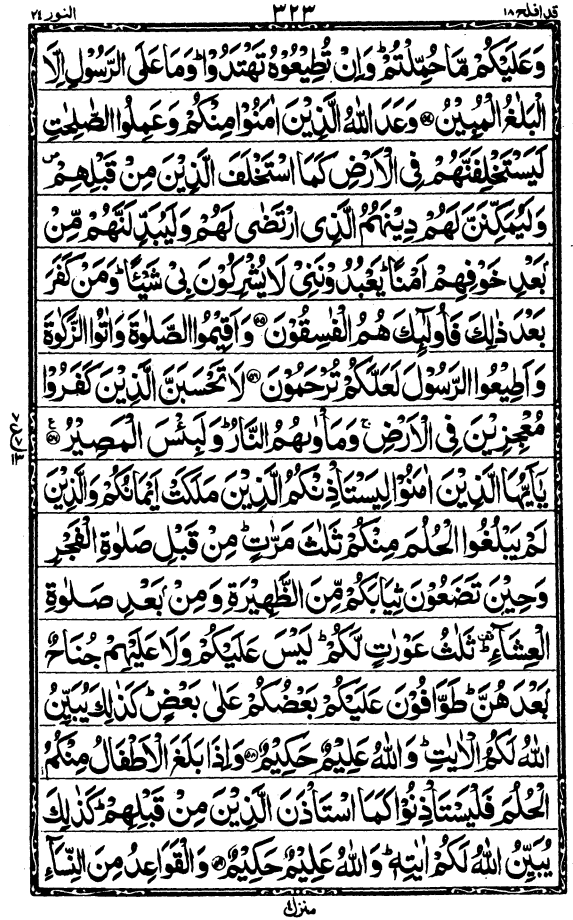 قد افلح ۱۸ ۳۲۳ النور ۲۴
وَعَلَيْكُمْ مَّا حُمِّلْتُمْ ؕ وَاِنْ تُطِيْعُوْهُ تَهْتَدُوْا ؕ وَمَا عَلَى الرَّسُوْلِ اِلَّا
الْبَلٰغُ الْمُبِيْنُ ﴿۵۴﴾ وَعَدَ اللّٰهُ الَّذِيْنَ اٰمَنُوْا مِنْكُمْ وَعَمِلُوا الصّٰلِحٰتِ
لَيَسْتَخْلِفَنَّهُمْ فِى الْاَرْضِ كَمَا اسْتَخْلَفَ الَّذِيْنَ مِنْ قَبْلِهِمْ ۪
وَلَيُمَكِّنَنَّ لَهُمْ دِيْنَهُمُ الَّذِى ارْتَضٰى لَهُمْ وَلَيُبَدِّلَنَّهُمْ مِّنْۢ
بَعْدِ خَوْفِهِمْ اَمْنًا ؕ يَعْبُدُوْنَنِىْ لَا يُشْرِكُوْنَ بِىْ شَيْئًا ؕ وَمَنْ كَفَرَ
بَعْدَ ذٰلِكَ فَاُولٰٓئِكَ هُمُ الْفٰسِقُوْنَ ﴿۵۵﴾ وَاَقِيْمُوا الصَّلٰوةَ وَاٰتُوا الزَّكٰوةَ
وَاَطِيْعُوا الرَّسُوْلَ لَعَلَّكُمْ تُرْحَمُوْنَ ﴿۵۶﴾ لَا تَحْسَبَنَّ الَّذِيْنَ كَفَرُوْا
مُعْجِزِيْنَ فِى الْاَرْضِ ۚ وَمَاْوٰىهُمُ النَّارُ ؕ وَلَبِئْسَ الْمَصِيْرُ ﴿۵۷﴾ ع
يٰۤاَيُّهَا الَّذِيْنَ اٰمَنُوْا لِيَسْتَاْذِنْكُمُ الَّذِيْنَ مَلَكَتْ اَيْمَانُكُمْ وَالَّذِيْنَ
لَمْ يَبْلُغُوا الْحُلُمَ مِنْكُمْ ثَلٰثَ مَرّٰتٍ ؕ مِنْ قَبْلِ صَلٰوةِ الْفَجْرِ
وَحِيْنَ تَضَعُوْنَ ثِيَابَكُمْ مِّنَ الظَّهِيْرَةِ وَمِنْۢ بَعْدِ صَلٰوةِ
الْعِشَآءِ ؕ ثَلٰثُ عَوْرٰتٍ لَّكُمْ ؕ لَيْسَ عَلَيْكُمْ وَلَا عَلَيْهِمْ جُنَاحٌۢ
بَعْدَهُنَّ ؕ طَوّٰفُوْنَ عَلَيْكُمْ بَعْضُكُمْ عَلٰى بَعْضٍ ؕ كَذٰلِكَ يُبَيِّنُ
اللّٰهُ لَكُمُ الْاٰيٰتِ ؕ وَاللّٰهُ عَلِيْمٌ حَكِيْمٌ ﴿۵۸﴾ وَاِذَا بَلَغَ الْاَطْفَالُ مِنْكُمُ
الْحُلُمَ فَلْيَسْتَاْذِنُوْا كَمَا اسْتَاْذَنَ الَّذِيْنَ مِنْ قَبْلِهِمْ ؕ كَذٰلِكَ
يُبَيِّنُ اللّٰهُ لَكُمْ اٰيٰتِهٖ ؕ وَاللّٰهُ عَلِيْمٌ حَكِيْمٌ ﴿۵۹﴾ وَالْقَوَاعِدُ مِنَ النِّسَآءِ
منزل ۴